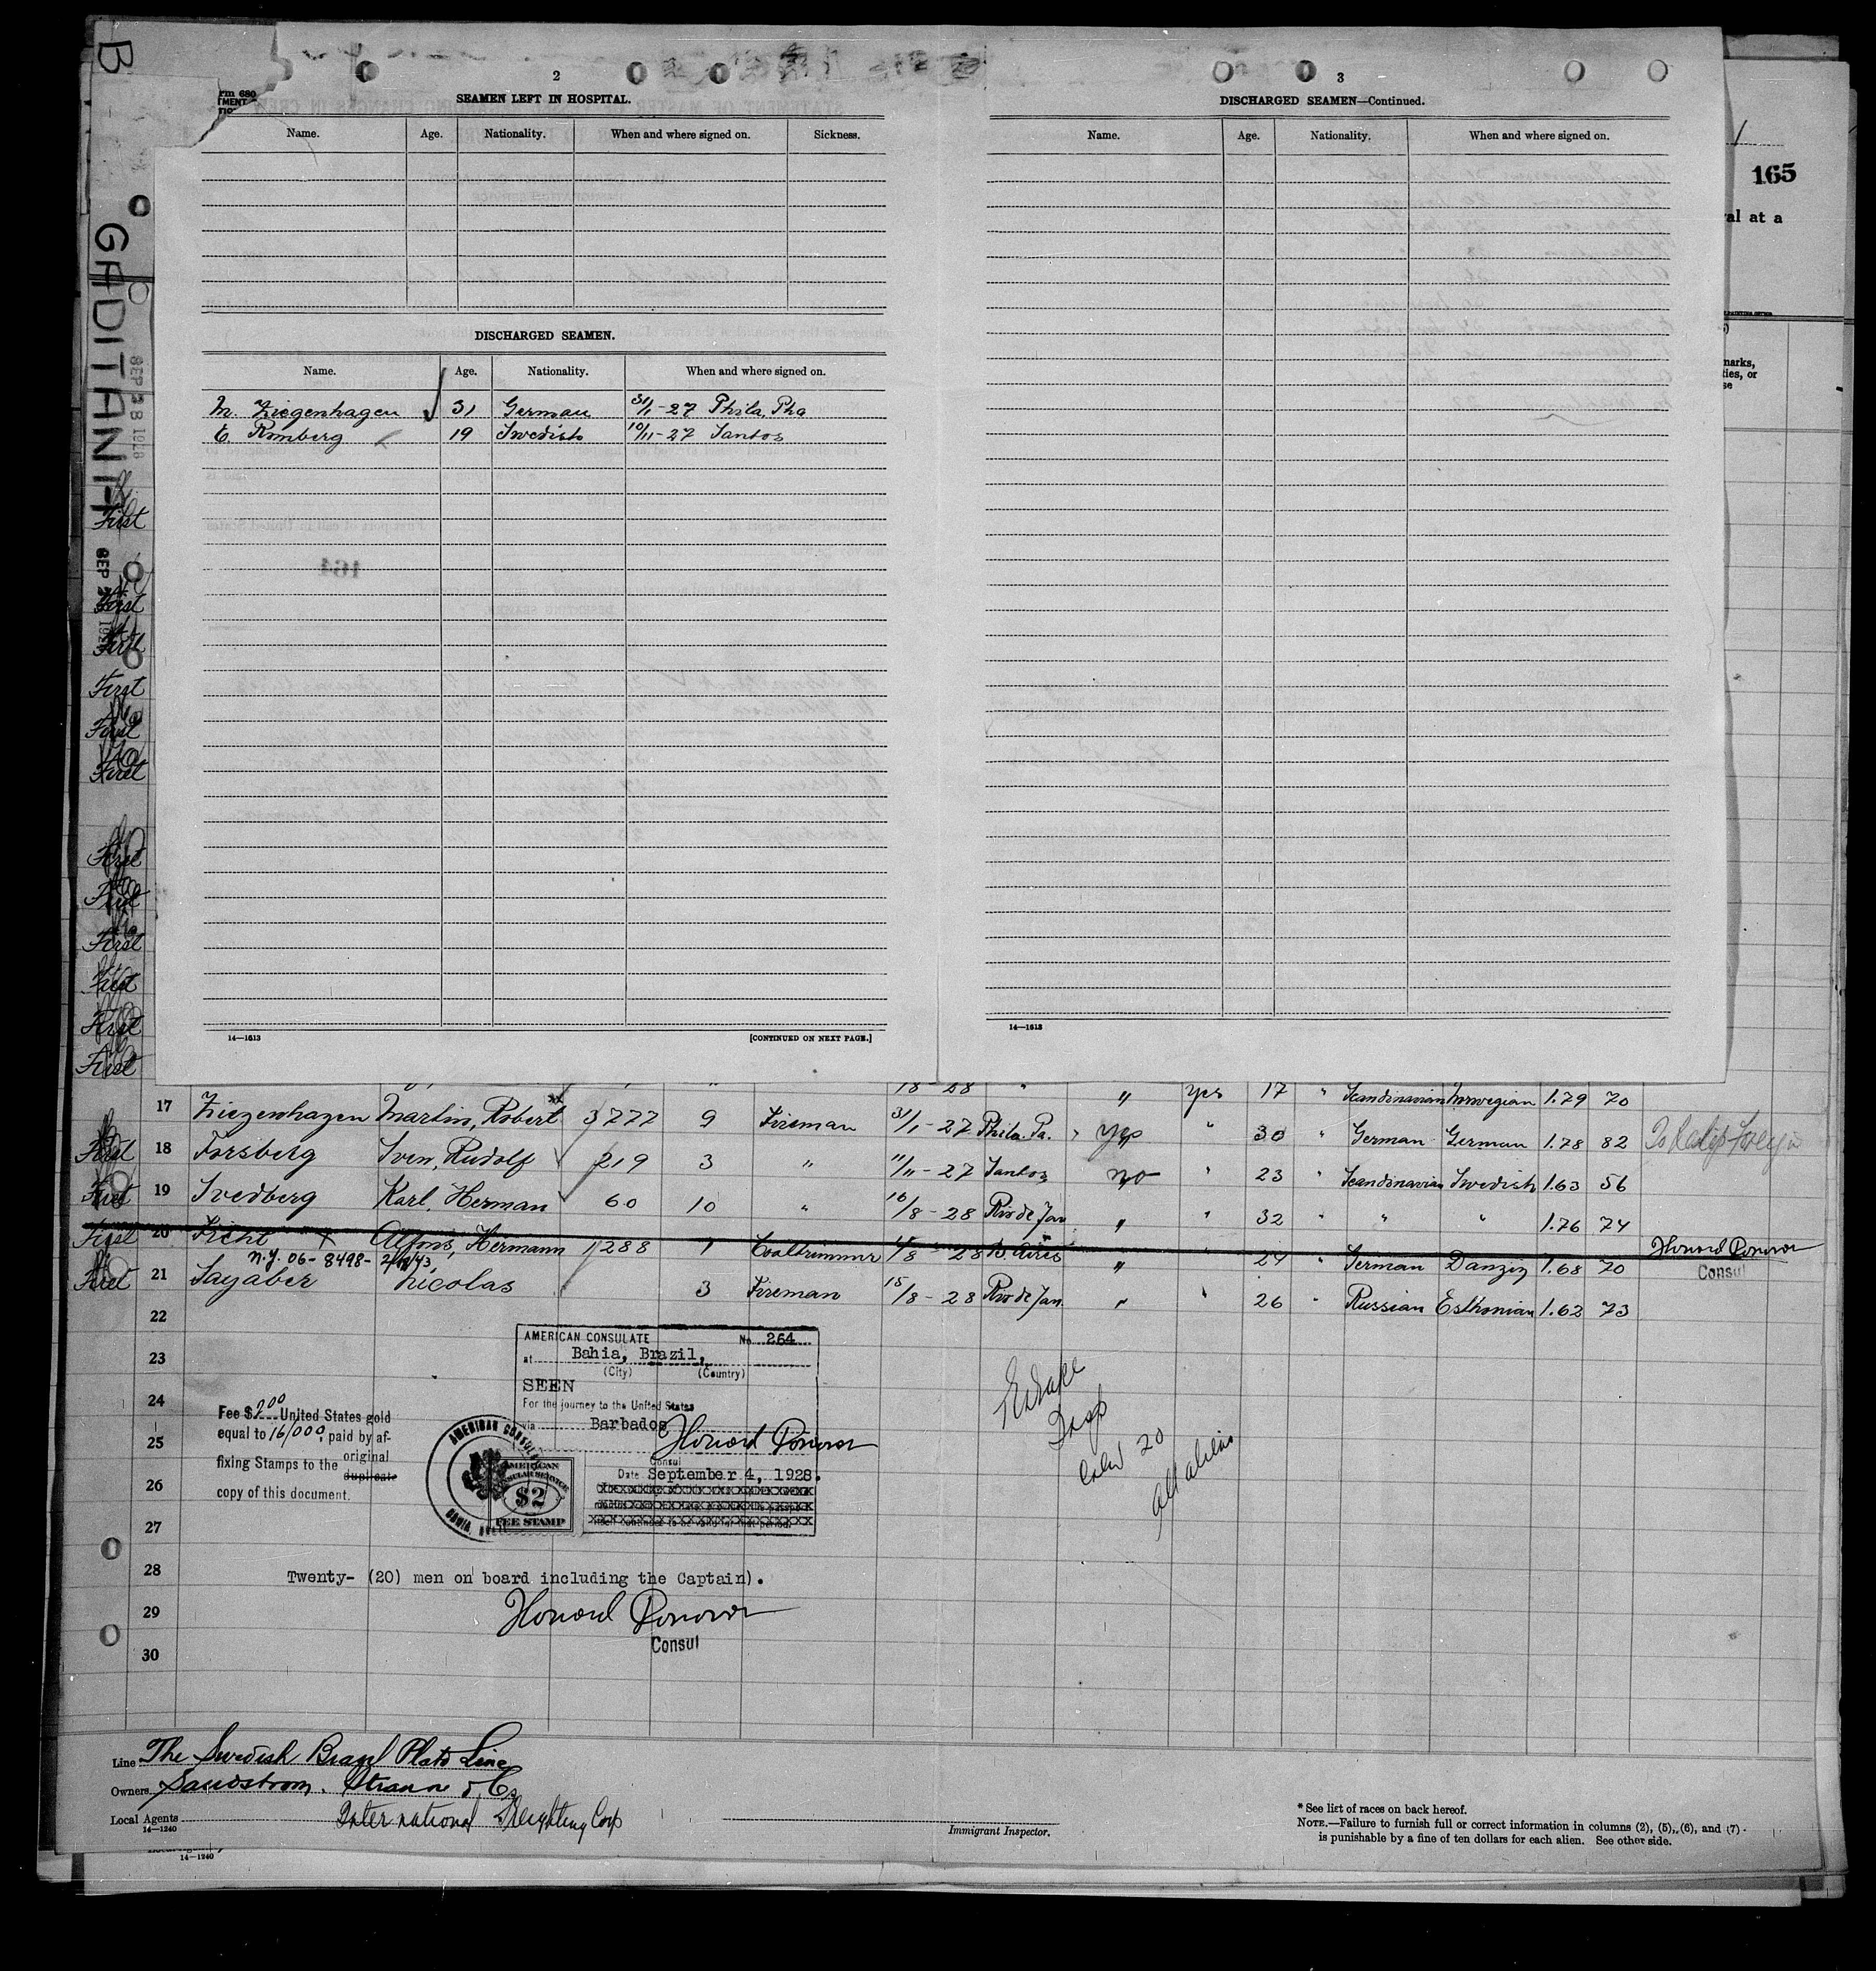 B
GADITANIA
SEP 28 1928
rm 680
2
SEAMEN LEFT IN HOSPITAL.
Name. Age. Nationality. When and where signed on. Sickness.
DISCHARGED SEAMEN.
Name. Age. Nationality. When and where signed on.
M. Ziegenhagen 31 German 31/1-27 Phila. Pha
E. Romberg 19 Swedish 10/11-27 Santos
14—1613
[CONTINUED ON NEXT PAGE.]
3
DISCHARGED SEAMEN—Continued.
Name. Age. Nationality. When and where signed on.
14—1613
165
al at a
First
First
First
First
First
First
First
First
First
First
First
First
18-28 " " Yes 17 " Scandinavian Norwegian 1.79 70
17 Ziezenhazen Martin, Robert 3777 9 Fireman 31/1-27 Phila. Pa. Yes " 30 " German German 1.78 82
First 18 Forsberg Sven, Rudolf 219 3 " 11/11-27 Santos no " 23 " Scandinavian Swedish 1.63 56
First 19 Svedberg Karl, Herman 60 10 " 16/8-28 Rio de Jan. " " 32 " " " 1.76 74
First 20 Ficht x Alfons, Hermann 1288 1 Coaltrimmer /8-28 B. Aires " 24 German Danzig 1.68 70
Howard Donovan
Consul
N.Y. 06-8498-
First 21 Sayaber Nicolas 3 Fireman 15/8-28 Rio de Jan. " " 26 " Russian Esthonian 1.62 73
22
23
24
25
26
27
28
29
30
AMERICAN CONSULATE No. 264
at Bahia, Brazil,
(City) (Country)
SEEN
For the journey to the United States
via Barbados
Howard Donovan
Consul
Date September 4, 1928.
Fee $2.00 United States gold
equal to 16/000, paid by af-
fixing Stamps to the original
duplicate
copy of this document.
AMERICAN CONSULATE
AMERICAN
CONSULAR SERVICE
$2
FEE STAMP
20
all aliens
Twenty- (20) men on board including the Captain).
Howard Donovan
Consul
Line The Swedish Brazil Plate Line
Owners Sandstrom, Stranne & Co
Local Agents International Freighting Corp
14—1240
Immigrant Inspector.
* See list of races on back hereof.
NOTE.—Failure to furnish full or correct information in columns (2), (5), (6), and (7)
is punishable by a fine of ten dollars for each alien. See other side.
14—1240